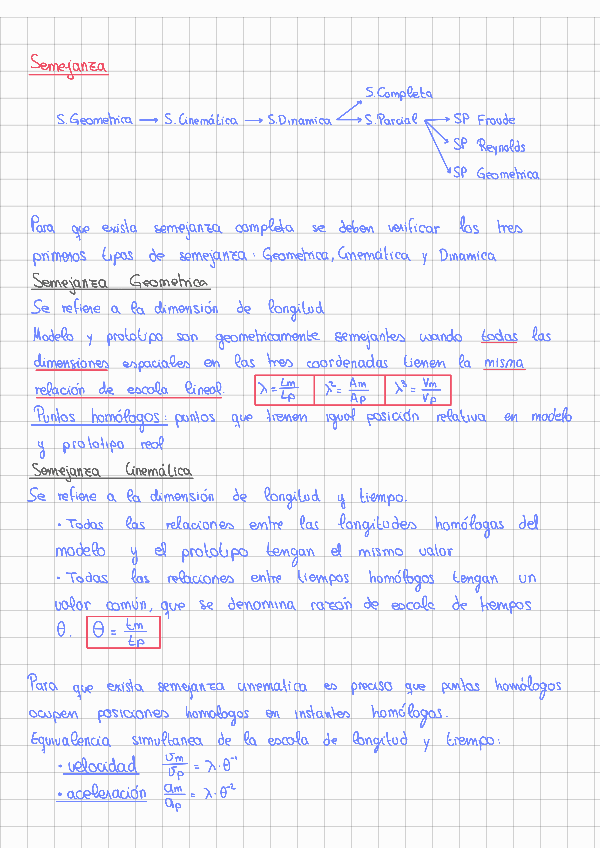 Semejanza
S. Completa
S. Geometrica → S. Cinemática → S. Dinamica → S. Parcial → SP Froude
SP Reynolds
SP Geometrica
Para que exista semejanza completa se deben verificar los tres
primeros tipos de semejanza: Geometrica, Cinemática y Dinamica
Semejanza Geometrica
Se refiere a la dimensión de longitud
Modelo y prototipo son geometricamente semejantes cuando todas las
dimensiones espaciales en las tres coordenadas tienen la misma
relación de escala lineal. λ = Lm/Lp λ² = Am/Ap λ³ = Vm/Vp
Puntos homólogos: puntos que tienen igual posición relativa en modelo
y prototipo real
Semejanza Cinemática
Se refiere a la dimensión de longitud y tiempo.
· Todas las relaciones entre las longitudes homólogas del
modelo y el prototipo tengan el mismo valor
· Todas las relaciones entre tiempos homólogos tengan un
valor común, que se denomina razón de escala de tiempos
θ. θ = tm/tp
Para que exista semejanza cinematica es preciso que puntos homólogos
ocupen posiciones homologas en instantes homólogos.
Equivalencia simultanea de la escala de longitud y tiempo:
· velocidad vm/vp = λ·θ⁻¹
· aceleración am/ap = λ·θ⁻²